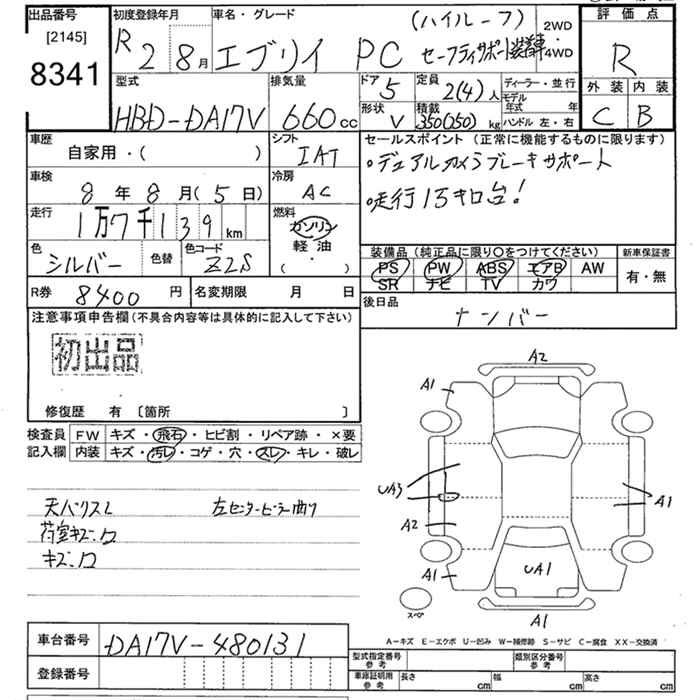 出品番号 初度登録年月 車名・グレード (ハイルーフ) 2WD 評価点
[2145] R 2 8月 エブリイ PC セーフティサポート装着車・4WD R
8341 型式 排気量 ドア 5 定員 2(4)人 ディーラー・並行 外装 内装
HBD-DA17V 660cc 形状 V 積載 350(250)kg モデル年式 年 ハンドル 左・右 C B
車歴 シフト セールスポイント(正常に機能するものに限ります)
自家用・( ) IAT ・デュアルカメラブレーキサポート
車検 冷房 走行1万キロ台!
8年8月(5日) AC
走行 1万7千139km 燃料 ガソリン
軽油
( ・ )
色 シルバー 色替 色コード Z2S
装備品(純正品に限り○をつけてください) 新車保証書
PS PW ABS エアB AW 有・無
SR ナビ TV カワ
R券 8400円 名変期限 月 日 後日品
ナンバー
注意事項申告欄(不具合内容等は具体的に記入して下さい)
初出品
修復歴 有 〔箇所 〕
検査員 FW キズ・飛石・ヒビ割・リペア跡・×要
記入欄 内装 キズ・汚レ・コゲ・穴・スレ・キレ・破レ
天バリスレ 左センターピラー曲り
荷室キズ・凹
キズ・凹
A2
A1
UA3
A1
A2
A1
UA1
スペア
A1
A-キズ E-エクボ U-凹み W-補修跡 S-サビ C-腐食 XX-交換済
車台番号 DA17V-480131
型式指定番号 参考 類別区分番号 参考
登録番号 車庫証明用 参考 長さ cm 幅 cm 高さ cm